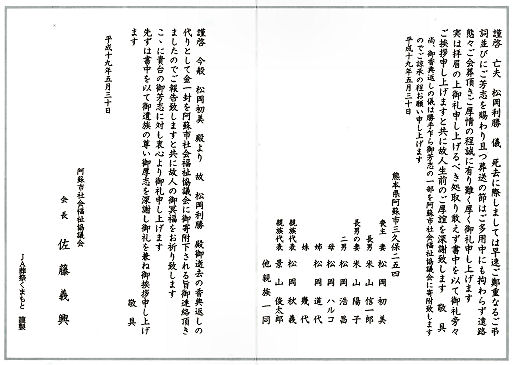 謹啓 亡夫 松岡利勝 儀 死去に際しましては早速ご鄭重なるご弔
詞並びにご芳志を賜わり且つ葬送の節はご多用中にも拘わらず遠路
態々ご会葬頂きご厚情の程誠に有り難く厚く御礼申し上げます
実は拝眉の上御礼申し上げるべき処取り敢えず書中を以て御礼旁々
ご挨拶申し上げますと共に故人生前のご厚誼を深謝致します 敬具
尚、御香典返しの儀は勝手乍ら御芳志の一部を阿蘇市社会福祉協議会に寄附致します
のでご諒承の程お願い申し上げます
平成十九年五月三十日
熊本県阿蘇市三久保二五四
喪主 妻 松岡初美
長男 米山信一郎
長男の妻 米山陽子
二男 松岡浩昌
母 松岡ハルコ
姉 松岡道代
妹 幾代
親族代表 松岡秋義
親族代表 景山俊太郎
他親族一同
謹啓 今般 松岡初美 殿より 故 松岡利勝 殿御逝去の香典返しの
代りとして金一封を阿蘇市社会福祉協議会に御寄附下される旨御連絡頂き
ましたのでご報告致しますと共に故人の御冥福をお祈り致します
こゝに貴台の御芳志に対し衷心より御礼申し上げます
先ずは書中を以て御遺族の尊い御厚志を深謝し御礼を兼ね御挨拶申し上げ
ます 敬具
平成十九年五月三十日
阿蘇市社会福祉協議会
会長 佐藤義興
JA葬祭くまもと 謹製